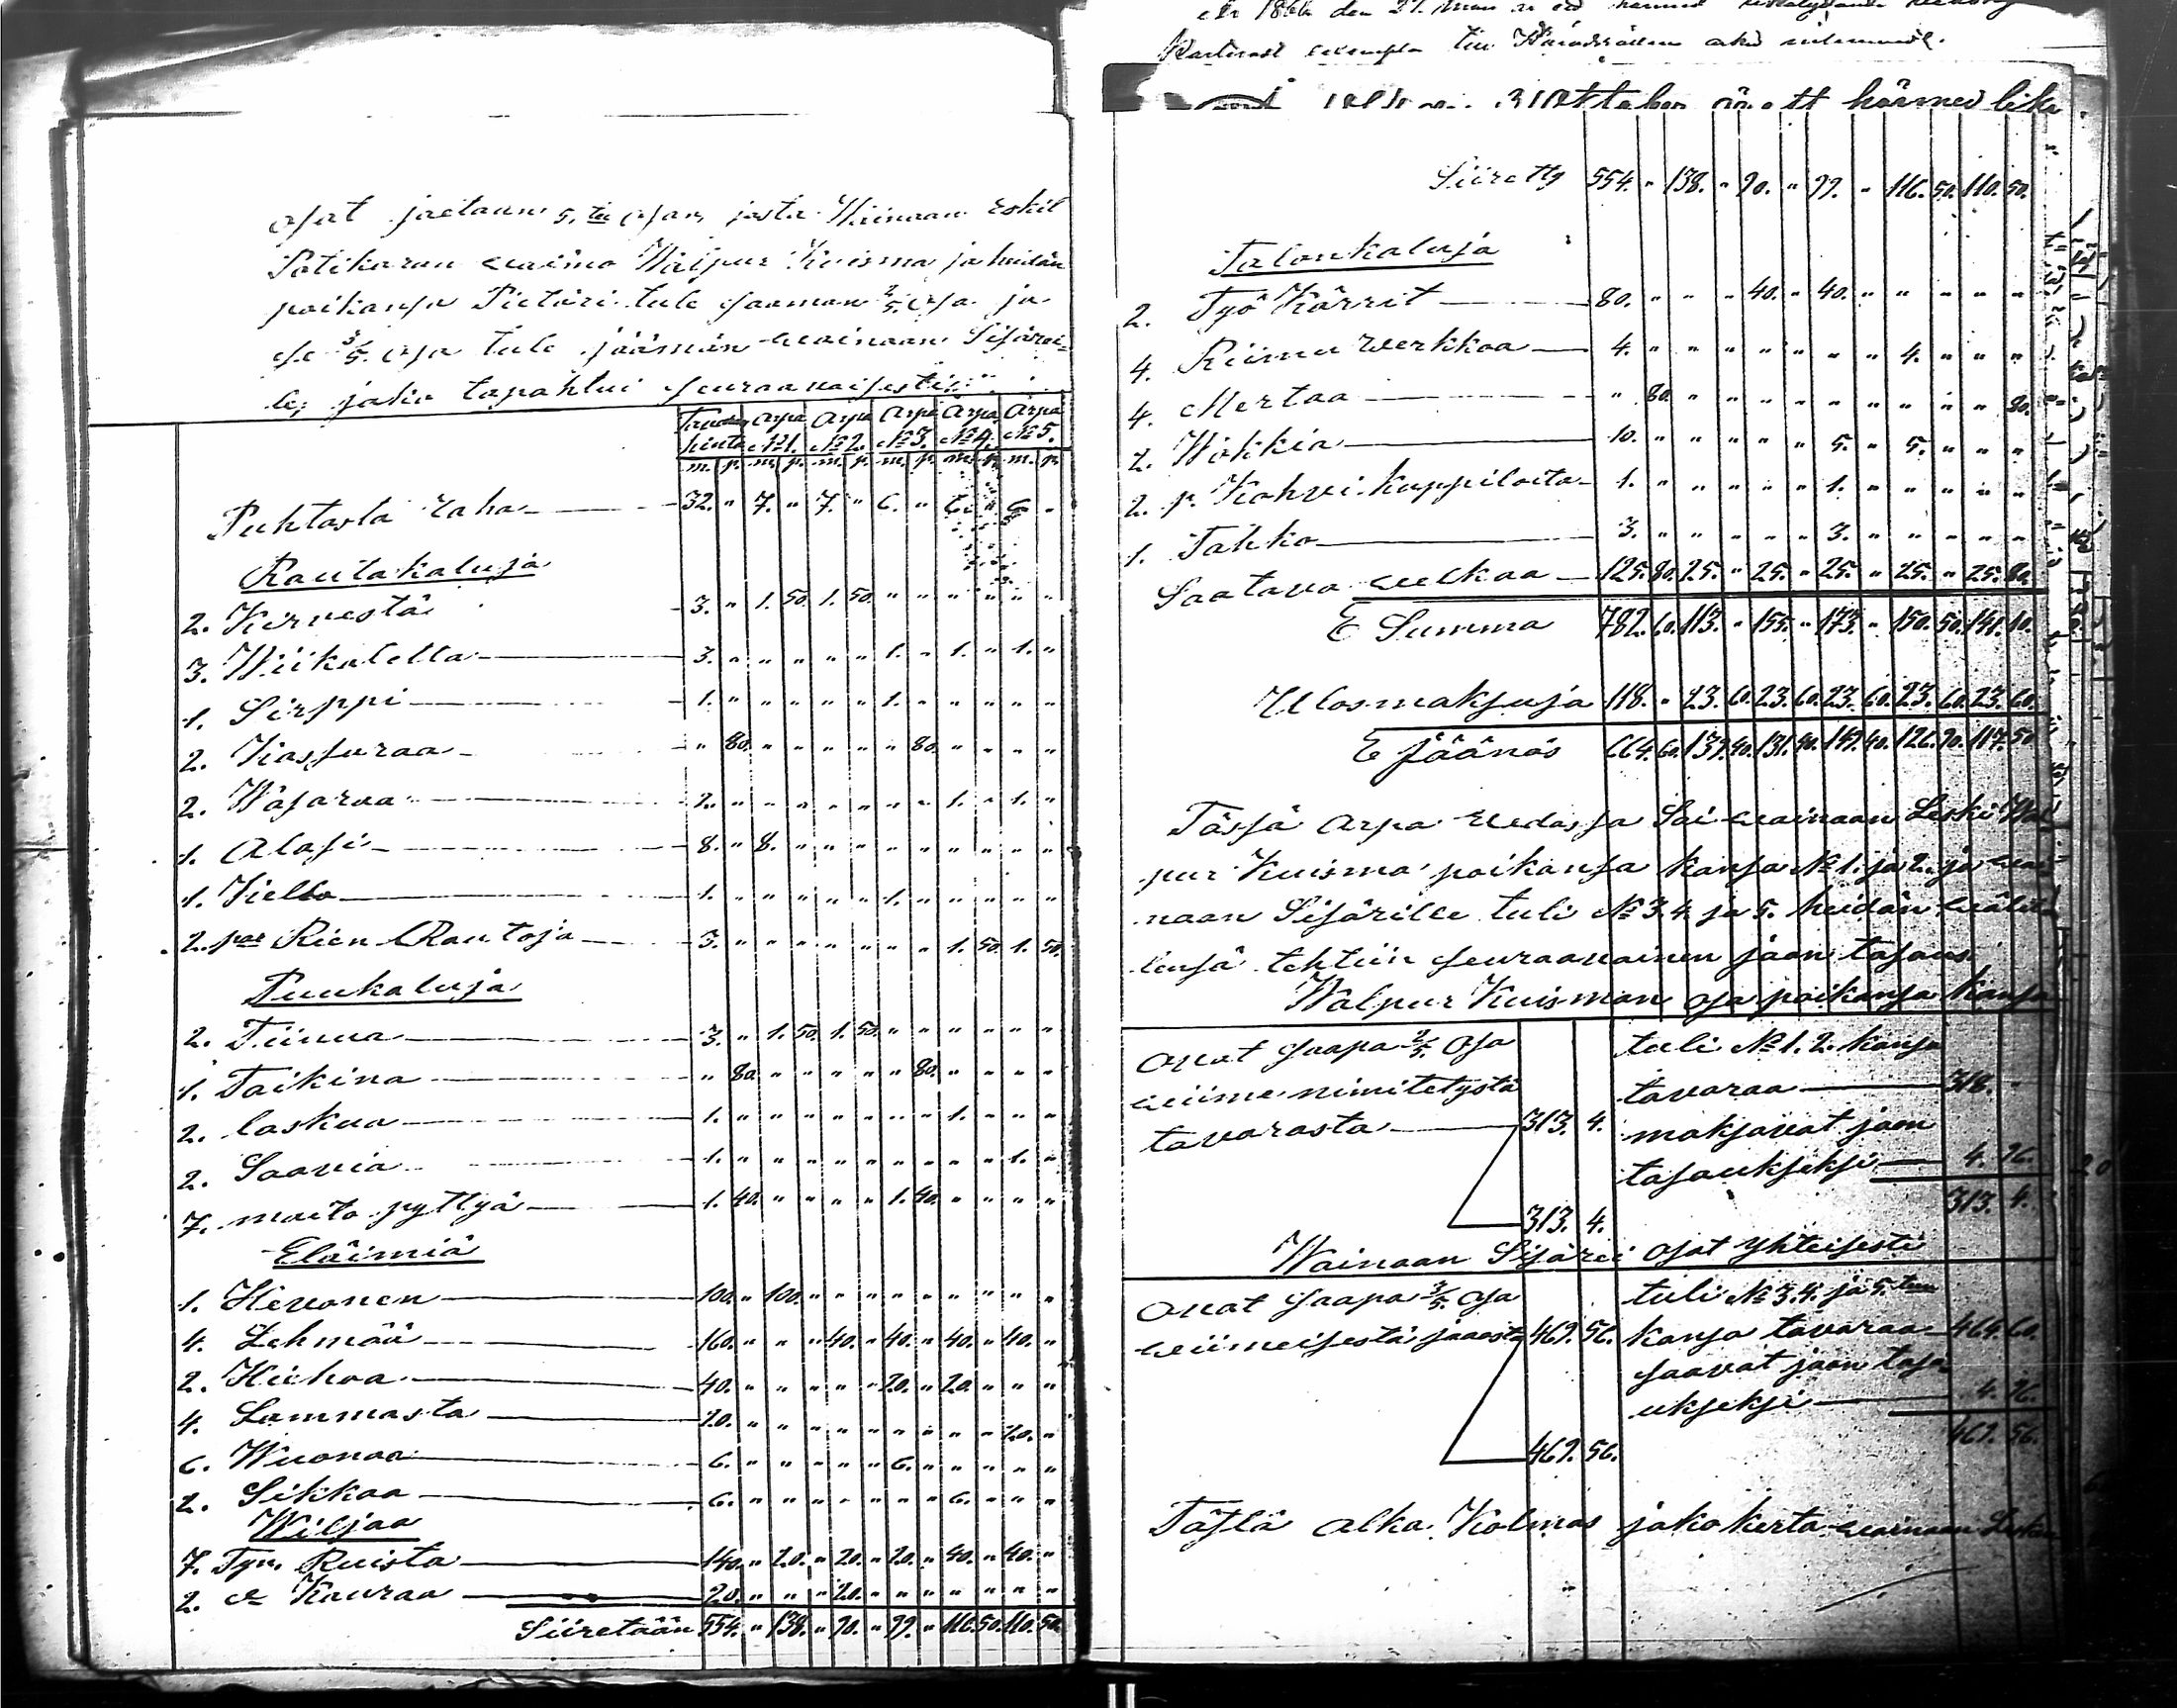 osat jaetaan 5. tee osan josta Wainaan Eskil
Potikaran waimo Walpur Kuisma ja heidän
poikansa Pietari tule saaman 2/5. osa ja
se 3/5. osa tule jäämän wainaan Sisärei-
le, jako tapahtui seuraavaisesti:
hinta Arpa No 1. Arpa No 2. Arpa No 3. Arpa No 4. Arpa No 5.
m. p. m. p. m. p. m. p. m. p. m. p.
Puhtasta raha 32. " 7. " 7. " 6. " 6. " 6. "
Rautakaluja
2. Kirvestä 3. " 1. 50. 1. 50. " " " " " "
3. Wiikatetta 3. " " " " " 1. " 1. " 1. "
1. Sirppi 1. " " " " " 1. " " " " "
2. Kassaraa " 80. " " " " " 80. " " " "
2. Wasaraa 2. " " " " " " " 1. " 1. "
1. Alasi 8. " 8. " " " " " " " " "
1. Kello 1. " " " " " 1. " " " " "
2. par Rien Rautoja 3. " " " " " " " 1. 50. 1. 50.
Puukaluja
2. Tiinua 3. " 1. 50. 1. 50. " " " " " "
1. Taikina " 80. " " " " " 80. " " " "
2. laskua 1. " " " " " " " 1. " " "
2. Saavia 1. " " " " " " " " " 1. "
7. maito pyttyä 1. 40. " " " " 1. 40. " " " "
Eläimiä
1. Hevonen 100. " 100. " " " " " " " " "
4. Lehmää 160. " " " 40. " 40. " 40. " 40. "
2. Hiehoa 40. " " " " " 20. " 20. " " "
4. Lammasta 20. " " " " " " " " " 20. "
6. Wuonaa 6. " " " " " 6. " " " " "
2. Sikkaa 6. " " " " " " " 6. " " "
Wiljaa
7. Tyn. Ruista 140. " 20. " 20. " 20. " 40. " 40. "
2. " Kauraa 20. " " " 20. " " " " " " "
Siiretään 554. " 138. " 90. " 99. " 116. 50. 110. 50.
1866 den 27.
31 Oktober härmed
Siiretty 554. " 138. " 90. " 99. " 116. 50. 110. 50.
Talonkaluja
2. Työ Kärrit 80. " " " 40. " 40. " " " " "
4. Riimu Werkkoa 4. " " " " " " " 4. " " "
4. Mertaa " 80. " " " " " " " " " 80.
2. Wokkia 10. " " " " " 5. " 5. " " "
2. p. Kahvi Kuppiloita 1. " " " " " 1. " " " " "
1. Tahko 3. " " " " " 3. " " " " "
Saatava welkaa 125. 80. 25. " 25. " 25. " 25. " 25. 80.
E Summa 782. 60. 113. " 155. " 173. " 150. 50. 141. 10.
Ulosmaksuja 118. " 23. 60. 23. 60. 23. 60. 23. 60. 23. 60.
E jäänös 664. 60. 139. 40. 131. 40. 149. 40. 126. 90. 117. 50.
Tässä arpa wedossa Sai wainaan Leski Wal
pur Kuisma poikansa kansa No 1. ja 2. ja wai
naan Sisärille tuli No 3. 4. ja 5. heidän wälil
lensä tehtiin seuraavainen jaon tasaus.
Walpur Kuisman osa poikansa Kansa
ovat saapa 2/5. osa
wiime nimitetystä
tavarasta 313. 4.
313. 4.
tuli No 1. 2. kansa
tavaraa 318. "
maksavat jaon
tasaukseksi 4. 96.
313. 4.
Wainaan Sisärei osat yhteisesti
ovat saapa 3/5. osa
wiimeisestä jaosta 469. 56.
469. 56.
tuli No 3. 4. ja 5. ten
kansa tavaraa 464. 60.
saavat jaon tasa
ukseksi 4. 96.
469. 56.
Tästä alka Kolmas jako kerta wainaan Lesken